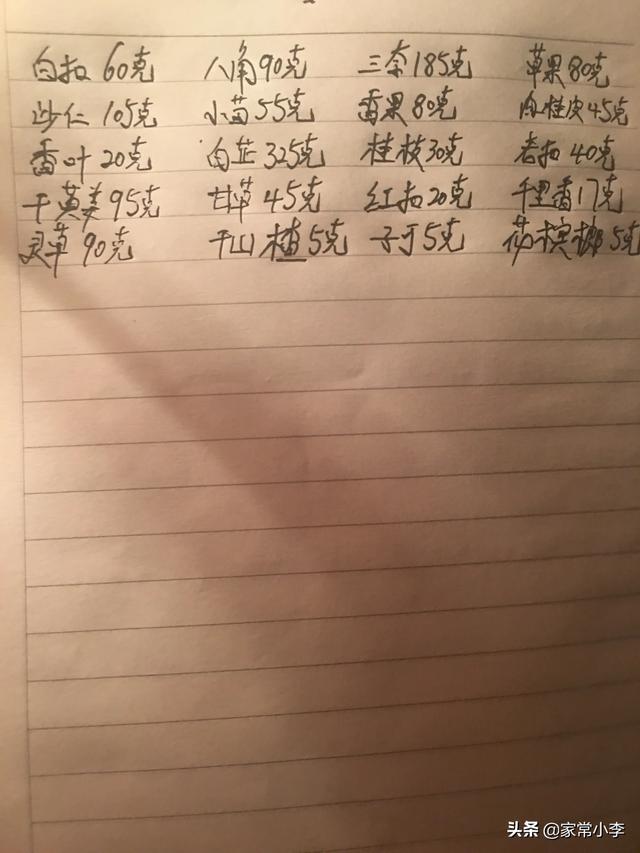 白扣60克 八角90克 三奈185克 草果80克
沙仁105克 小茴55克 香果80克 肉桂皮45克
香叶20克 白芷325克 桂枝30克 老扣40克
干黄姜95克 甘草45克 红扣20克 千里香17克
灵草90克 干山楂5克 子于5克 花槟榔5克
头条@家常小李